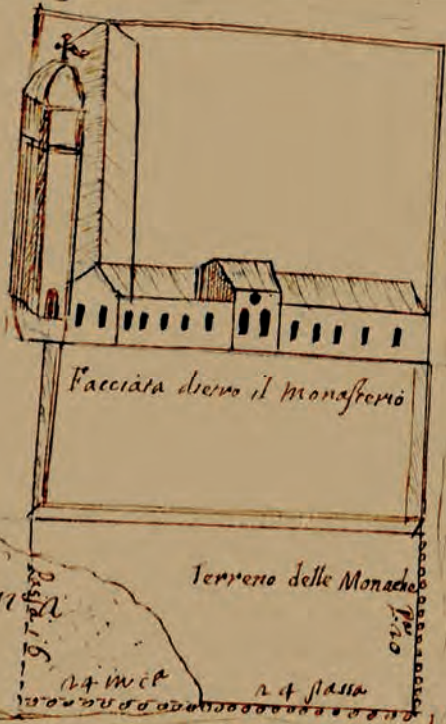 Facciata dietro il Monasterio
Terreno delle Monache
24 in ca
24 passa